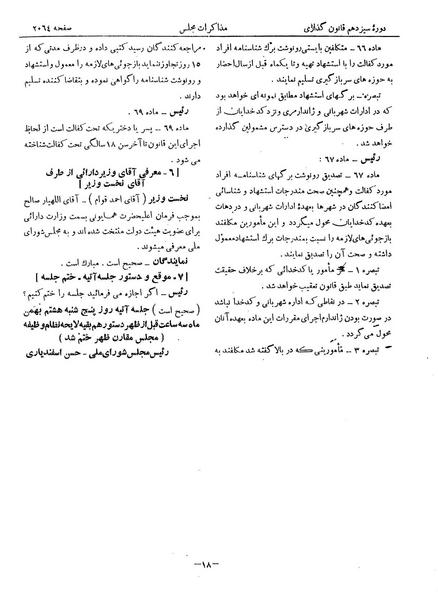 دورهٔ سیزدهم قانون گذاری
مذاکرات مجلس
صفحه ۲۰۶۴
ماده ۶۶ – متکفلین بایستی رونوشت شناسنامه افراد
مورد کفالت را با استشهاد تهیه و تا یکماه قبل از سال احضار
به حوزه های سربازگیری تسلیم نمایند .
تبصره – برگهای استشهاد مطابق نمونه ای خواهد بود
که از ادارات شهربانی و ژاندارمری و نزد کدخدایان از
طرف حوزه های سربازگیری در دسترس مشمولین گذارده
خواهد شد .
رئیس – ماده ۶۷ :
ماده ۶۷ – تصدیق رونوشت برگهای شناسنامه افراد
مورد کفالت و همچنین صحت مندرجات استشهاد و شناسائی
امضا کنندگان در شهرها بعهدهٔ ادارات شهربانی و در دهات
بعهده کدخدایان محول میگردد و این مأمورین مکلفند
بازجوئی های لازمه را نسبت بمندرجات برگ استشهاد معمول
داشته و صحت آن را تصدیق نمایند .
تبصره ۱ – مأمور یا کدخدائی که برخلاف حقیقت
تصدیق نماید طبق قانون تعقیب خواهد شد .
تبصره ۲ – در نقاطی که اداره شهربانی و کدخدا نباشد
در صورت بودن ژاندارم اجرای مقررات این ماده بعهده آنان
محول می گردد .
تبصره ۳ – مأمورینی که در بالا گفته شد مکلفند به
مراجعه کنندگان رسید کتبی داده و در ظرف مدتی که از
۱۵ روز تجاوز ننماید بازجوئی های لازمه را معمول و استشهاد
و رونوشت شناسنامه را گواهی نموده و بتقاضا کننده تسلیم
نمایند .
رئیس – ماده ۶۹ .
ماده ۶۹ – پسر یا دختریکه تحت کفالت است از لحاظ
اجرای این قانون تا آخر سن ۱۸ سالگی تحت کفالت شناخته
می شود .
[ ۶ – معرفی آقای وزیر دارائی از طرف
آقای نخست وزیر ]
نخست وزیر ( آقای احمد قوام ) – آقای اللهیار صالح
بموجب فرمان اعلیحضرت همایونی بسمت وزارت دارائی
برای عضویت هیئت دولت منتخب شده اند و به مجلس شورای
ملی معرفی میشوند .
نمایندگان – صحیح است . مبارك است .
[ ۷ – موقع و دستور جلسه آتیه – ختم جلسه ]
رئیس – اگر اجازه می فرمائید جلسه را ختم کنیم ؟
( صحیح است ) جلسه آتیه روز پنج شنبه هشتم بهمن
ماه سه ساعت قبل از ظهر دستور هم بقیه لایحه نظام وظیفه
( مجلس مقارن ظهر ختم شد )
رئیس مجلس شورای ملی – حسن اسفندیاری
–۱۸–